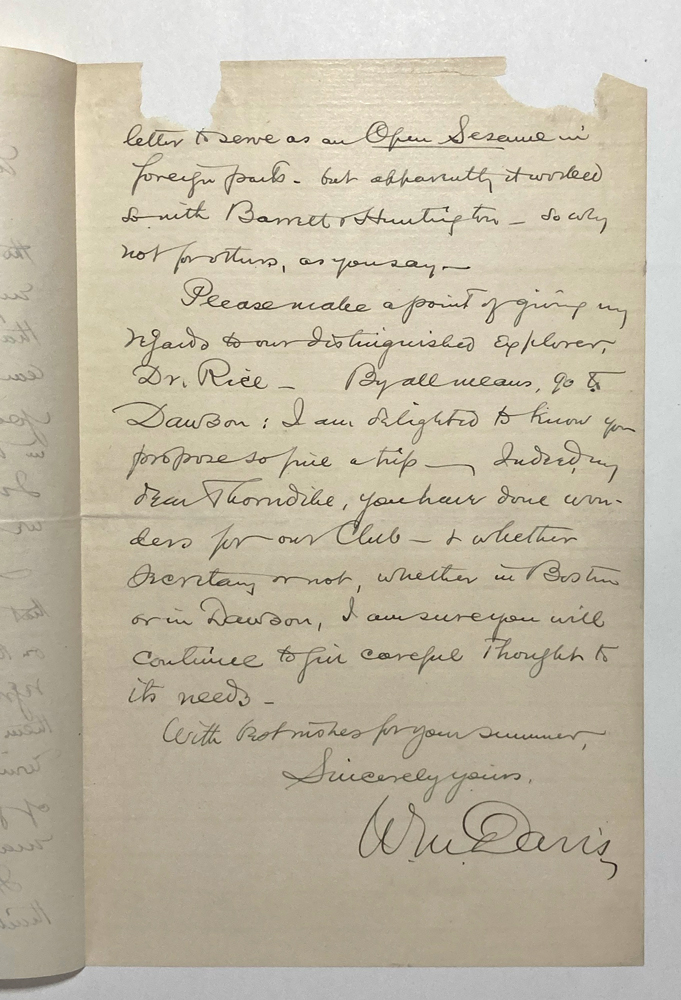 letter to serve as an Open Sesame in
foreign parts - but apparently it worked
so with Barrett & Huntington - so why
not for others, as you say -
Please make a point of giving my
regards to our distinguished Explorer,
Dr. Rice - By all means, go to
Dawson: I am delighted to know you
propose so fine a trip - Indeed, my
dear Thorndike, you have done won-
ders for our Club - & whether
Secretary or not, whether in Boston
or in Dawson, I am sure you will
continue to give careful thought to
its needs -
With best wishes for your summer,
Sincerely yours,
W. M. Davis